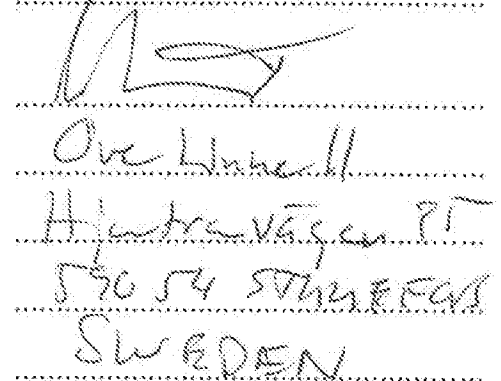 Ove Linnell
Hjentravägen 85
590 54 STUREFORS
SWEDEN